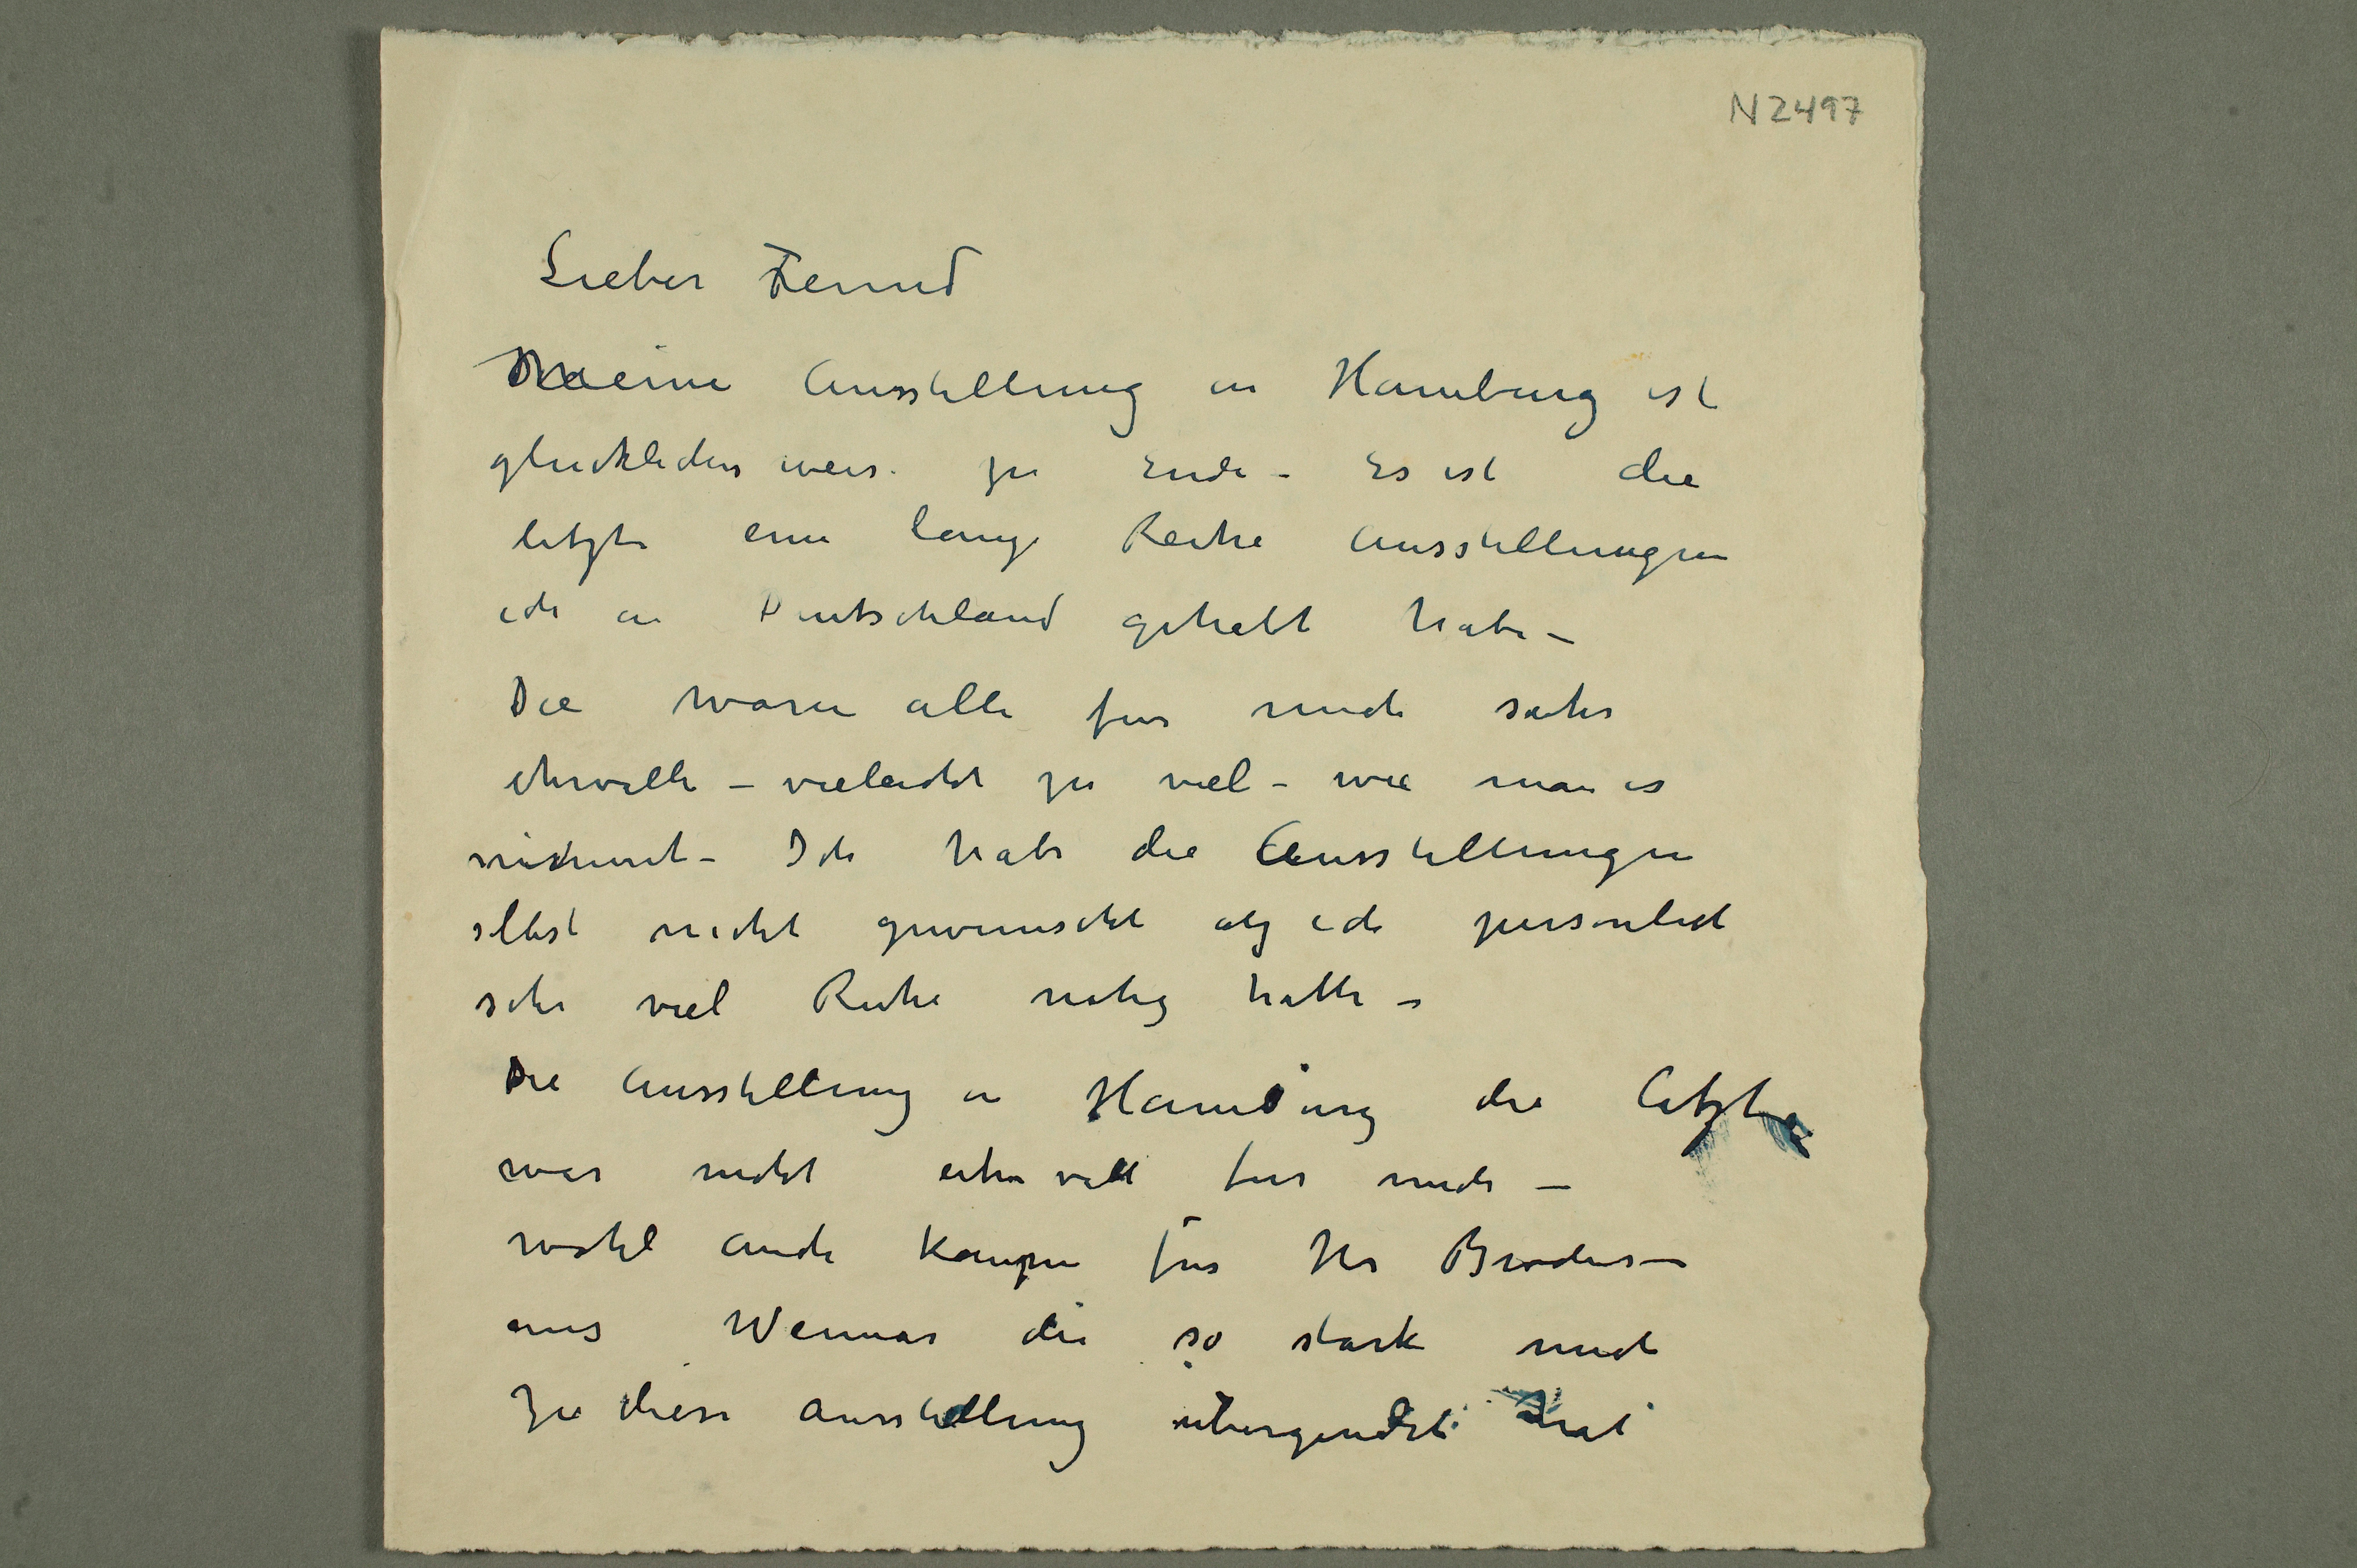 N 2497
Lieber Freund
Meine Ausstellung in Hamburg ist
glücklicher weis. zu Ende – Es ist die
letzte eine lange Reihe Ausstellungen
ich in Deutschland gehabt habe –
Die waren alle für mich sehr
ehrvolle – vieleicht zu viel – wie man es
nimmt – Ich habe die Ausstellungen
selbst nicht gewünscht als ich personlich
sehr viel Ruhe notig hatte –
Die Ausstellung in Hamburg die letzte
war nicht ehrvoll für mich –
wohl auch kaum für Hr Brodersen
aus Weimar die so stark mich
zu diese Ausstellung hat